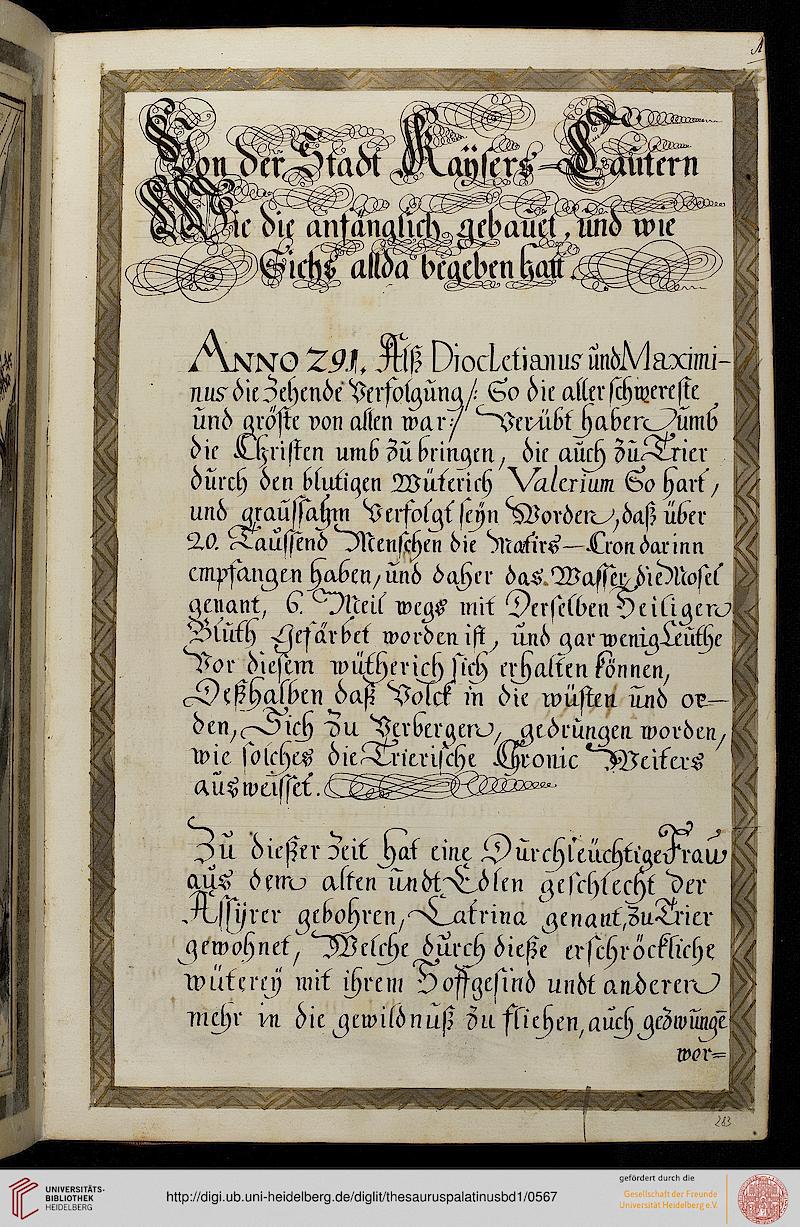 A
Von der Stadt Kaÿsers-Lautern
Wie die anfänglich gebauet, und wie
Sichs allda begeben hatt.
ANNO 291. Alß Diocletianus und Maximi-
nus die Zehende Verfolgung /: So die aller schwereste
und gröste von allen war :/ Verübt haben, umb
die Christen umb zu bringen, die auch zu Trier
durch den blutigen Wüterich Valerium So hart,
und graussahm Verfolgt seÿn Worden, daß über
20. Taussend Menschen die Matirs-Cron darinn
empfangen haben, und daher das Wasser die Mosel
genant, 6. Meil wegs mit Derselben Heiligen
Bluth Gefärbet worden ist, und gar wenig Leuthe
Vor diesem wütherich sich erhalten können,
Deßhalben daß Volck in die wüsten und oe-
den, Sich zu Verbergen, gedrungen worden,
wie solches die Trierische Chronic Weiters
ausweisset.
Zu dießer Zeit hat eine Durchleuchtige Frau
aus dem alten undt Edlen geschlecht der
Assÿrer gebohren, Catrina genant, zu Trier
gewohnet, Welche durch dieße erschröckliche
wütereÿ mit ihrem Hoffgesind undt anderen
mehr in die gewildnuß zu fliehen, auch gezwungē
wor=
283
UNIVERSITÄTS-
BIBLIOTHEK
HEIDELBERG
http://digi.ub.uni-heidelberg.de/diglit/thesauruspalatinusbd1/0567
gefördert durch die
Gesellschaft der Freunde
Universität Heidelberg e.V.